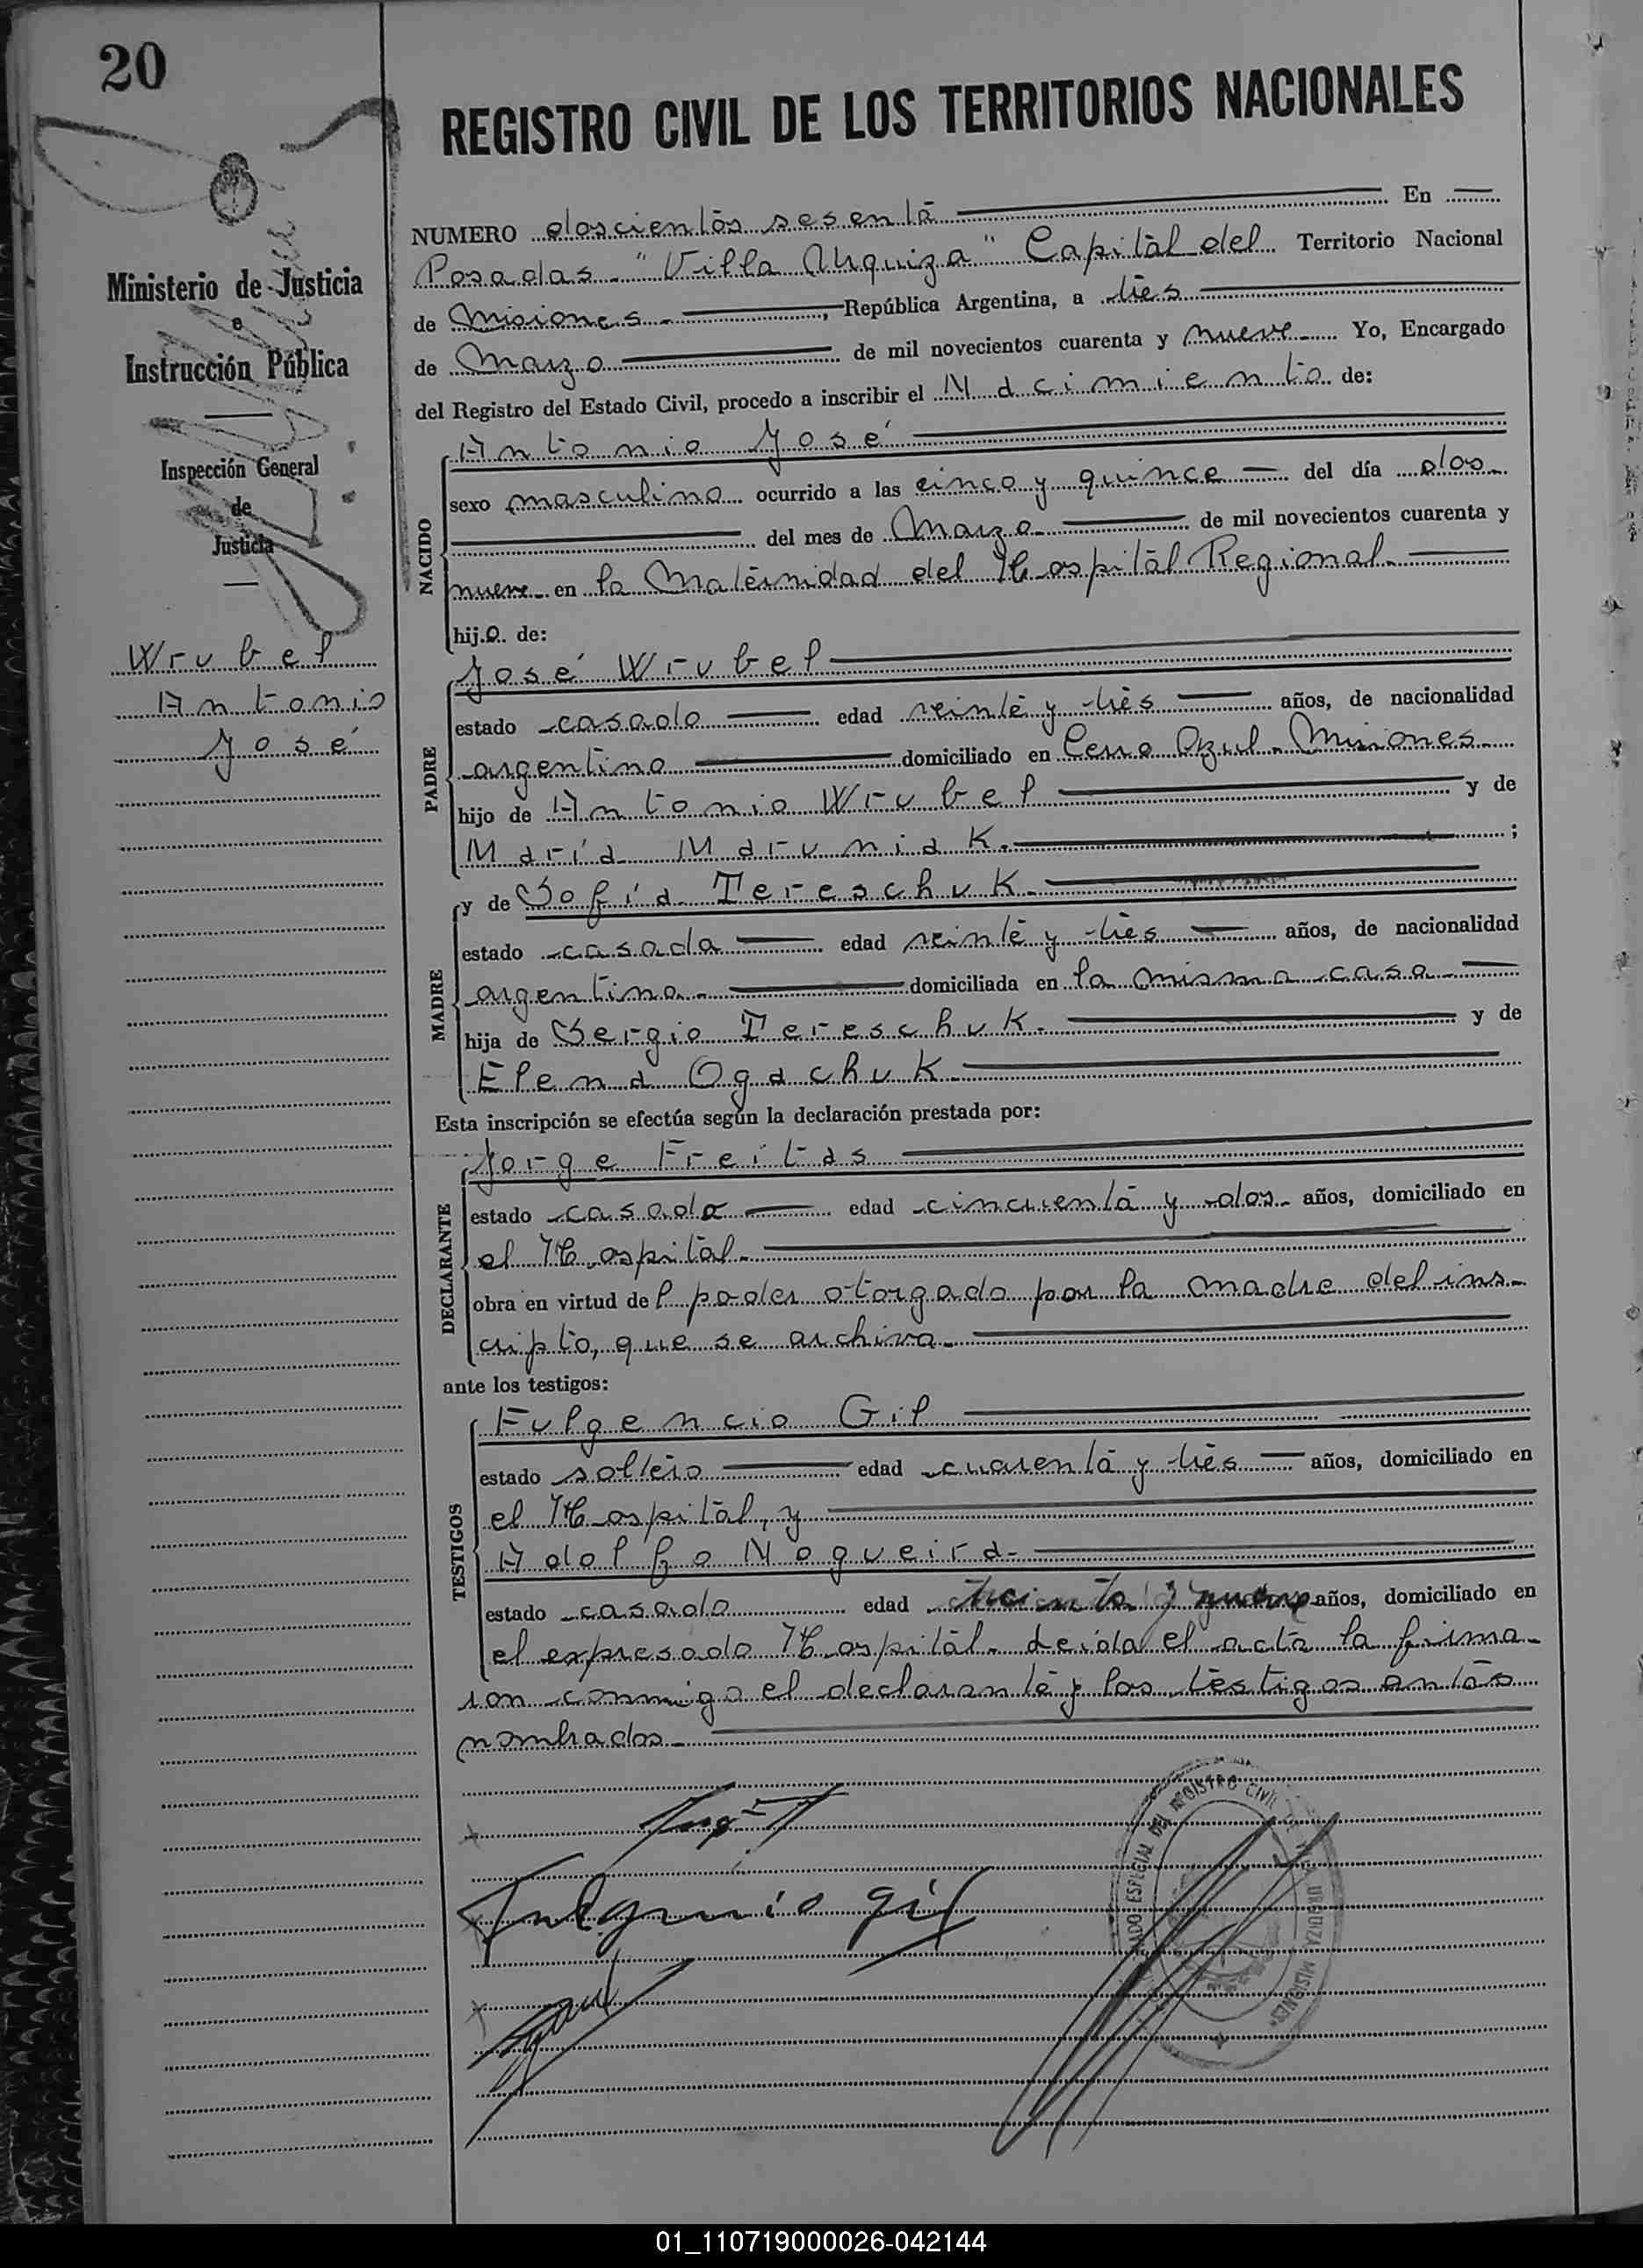 20
REGISTRO CIVIL DE LOS TERRITORIOS NACIONALES
Ministerio de Justicia
e
Instrucción Pública
Inspección General
de
Justicia
Wrubel
Antonio
José
NUMERO doscientos sesenta En
Posadas - "Villa Urquiza" Capital del Territorio Nacional
de Misiones - , República Argentina, a tres
de Marzo de mil novecientos cuarenta y nueve Yo, Encargado
del Registro del Estado Civil, procedo a inscribir el Nacimiento de:
NACIDO
Antonio José
sexo masculino ocurrido a las cinco y quince del día dos
del mes de Marzo de mil novecientos cuarenta y
nueve en la Maternidad del Hospital Regional.
hijo de:
PADRE
José Wrubel
estado casado edad veinte y tres años, de nacionalidad
argentino domiciliado en Cerro Azul - Misiones
hijo de Antonio Wrubel y de
María Maruniak. ;
MADRE
y de Sofía Tereschuk.
estado casada edad veinte y tres años, de nacionalidad
argentina. domiciliada en la misma casa
hija de Sergio Tereschuk. y de
Elena Ogachuk
Esta inscripción se efectúa según la declaración prestada por:
DECLARANTE
Jorge Freitas
estado casado edad cincuenta y dos años, domiciliado en
el Hospital.
obra en virtud del poder otorgado por la madre del ins-
cripto, que se archiva.
ante los testigos:
TESTIGOS
Fulgencio Gil
estado soltero edad cuarenta y tres años, domiciliado en
el Hospital, y
Adolfo Nogueira
estado casado edad treinta y nueve años, domiciliado en
el expresado Hospital. Leída el acta la firma-
ron conmigo el declarante y los testigos antes
nombrados.
Fulgencio Gil
ESPECIAL DEL REGISTRO CIVIL URQUIZA MISIONES
01_110719000026-042144